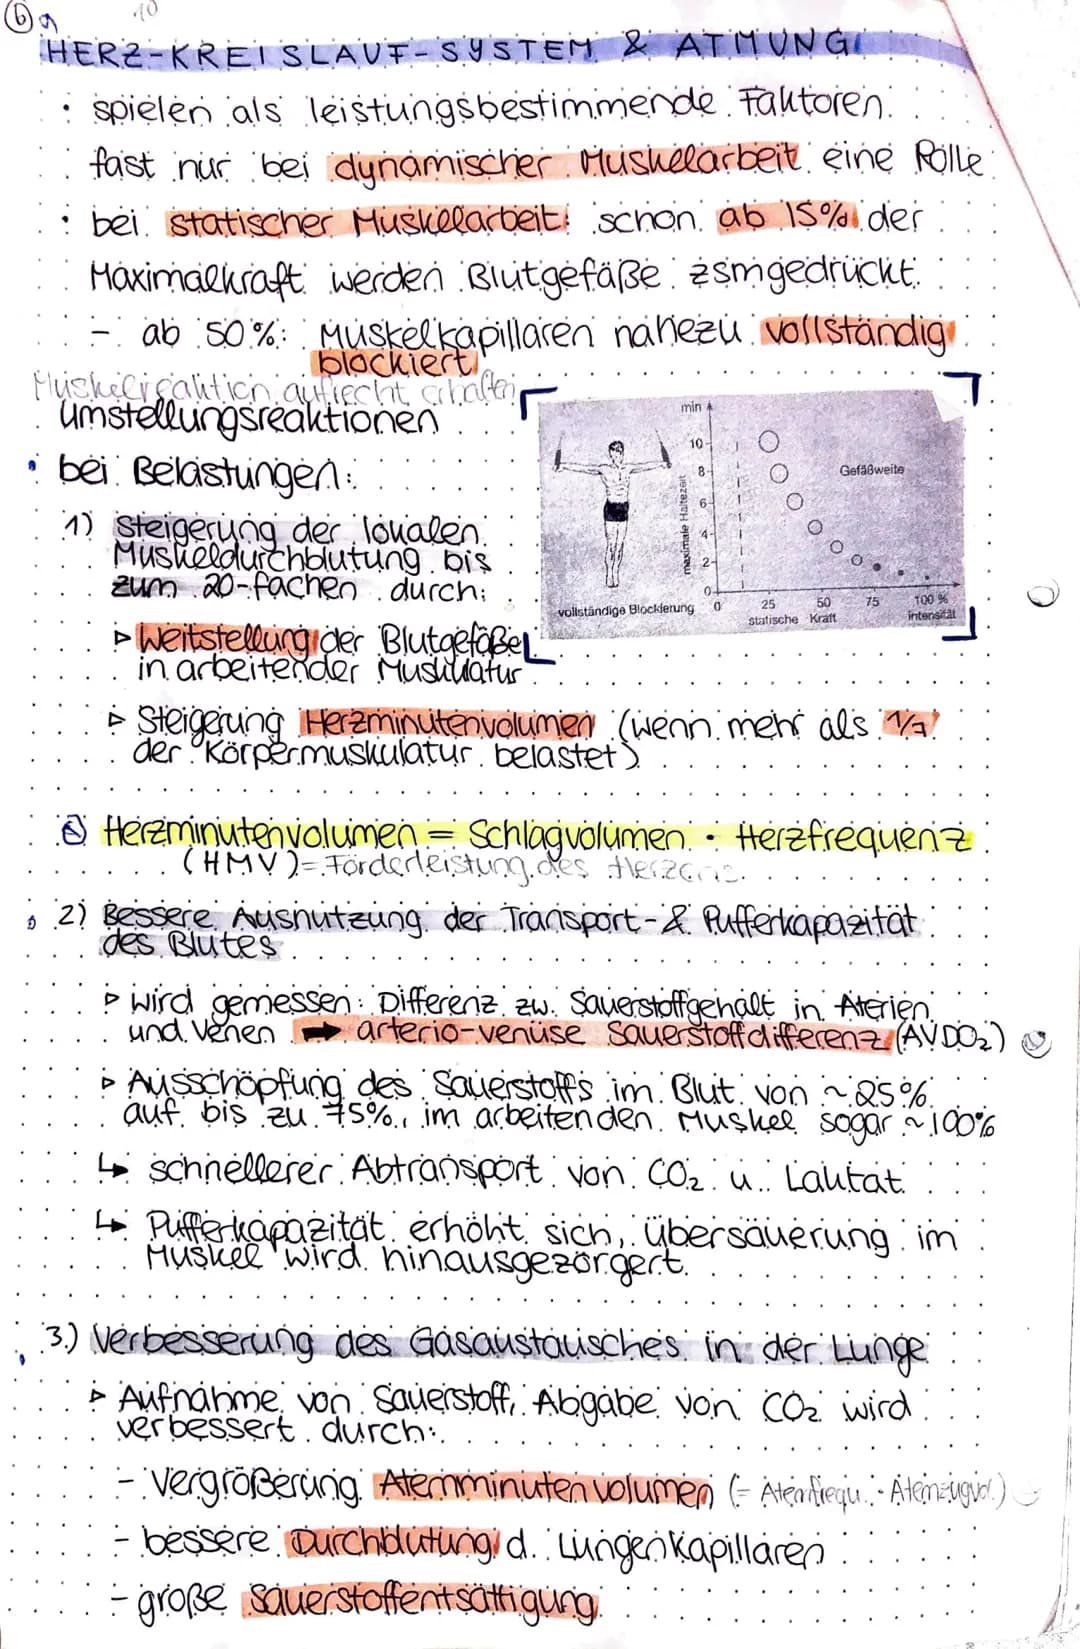 6
10
HERZ-KREISLAUF-SYSTEM & ATMUNG
• spielen als leistungsbestimmende Faktoren
fast nur bei dynamischer Muskelarbeit eine Rolle
• bei statischer Muskelarbeit schon ab 15% der
Maximalkraft werden Blutgefäße zsmgedrückt.
- ab 50%: Muskelkapillaren nahezu vollständig
blockiert
Muskelreaktion aufrecht erhalten
Umstellungsreaktionen
• bei Belastungen:
1) Steigerung der lokalen
Muskeldurchblutung bis
zum 20-fachen durch:
▹ Weitstellung der Blutgefäße
in arbeitender Muskulatur
min
10
8
6
4
2
0
maximale Haltezeit
Gefäßweite
vollständige Blockierung
0 25 50 75 100 %
statische Kraft Intensität
▹ Steigerung Herzminutenvolumen (wenn mehr als 1/7
der Körpermuskulatur belastet)
Herzminutenvolumen = Schlagvolumen · Herzfrequenz
(HMV) = Förderleistung des Herzens.
• 2) Bessere Ausnutzung der Transport- & Pufferkapazität
des Blutes
▹ wird gemessen: Differenz zw. Sauerstoffgehalt in Aterien
und Venen ➡ arterio-venöse Sauerstoffdifferenz (AVDO₂)
▹ Ausschöpfung des Sauerstoffs im Blut von ~25%
auf bis zu 75%, im arbeitenden Muskel sogar ~100%
↳ schnellerer Abtransport von CO₂ u. Laktat
↳ Pufferkapazität erhöht sich, Übersäuerung im
Muskel wird hinausgezörgert.
• 3.) Verbesserung des Gasaustausches in der Lunge
▹ Aufnahme von Sauerstoff, Abgabe von CO₂ wird
verbessert durch:
- Vergrößerung Atemminutenvolumen (= Atemfrequ. · Atemzugvol.)
- bessere Durchblutung d. Lungenkapillaren
- große Sauerstoffentsättigung